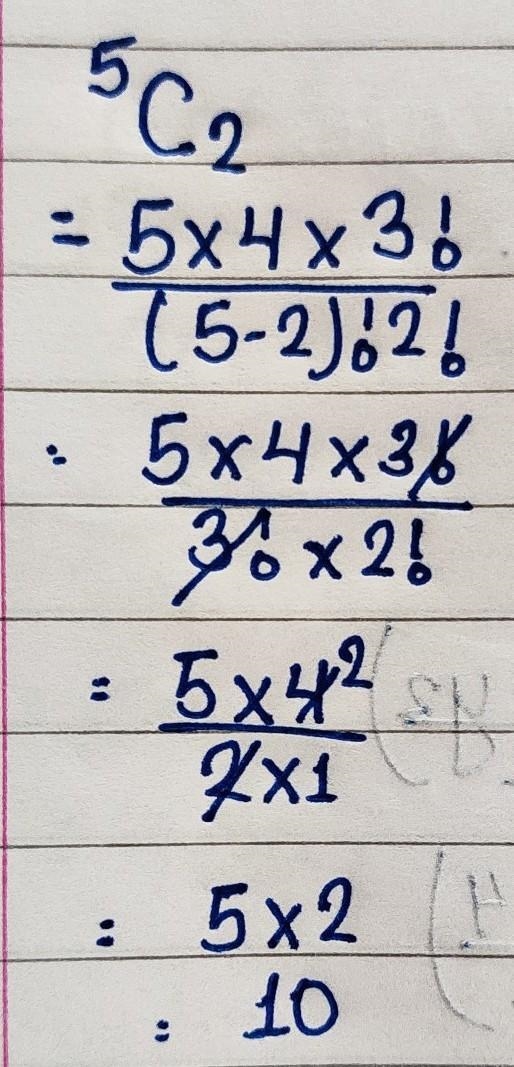 ⁵C₂
= 5×4×3!
(5-2)!2!
= 5×4×3!
3!×2!
= 5×4²
2×1
= 5×2
= 10